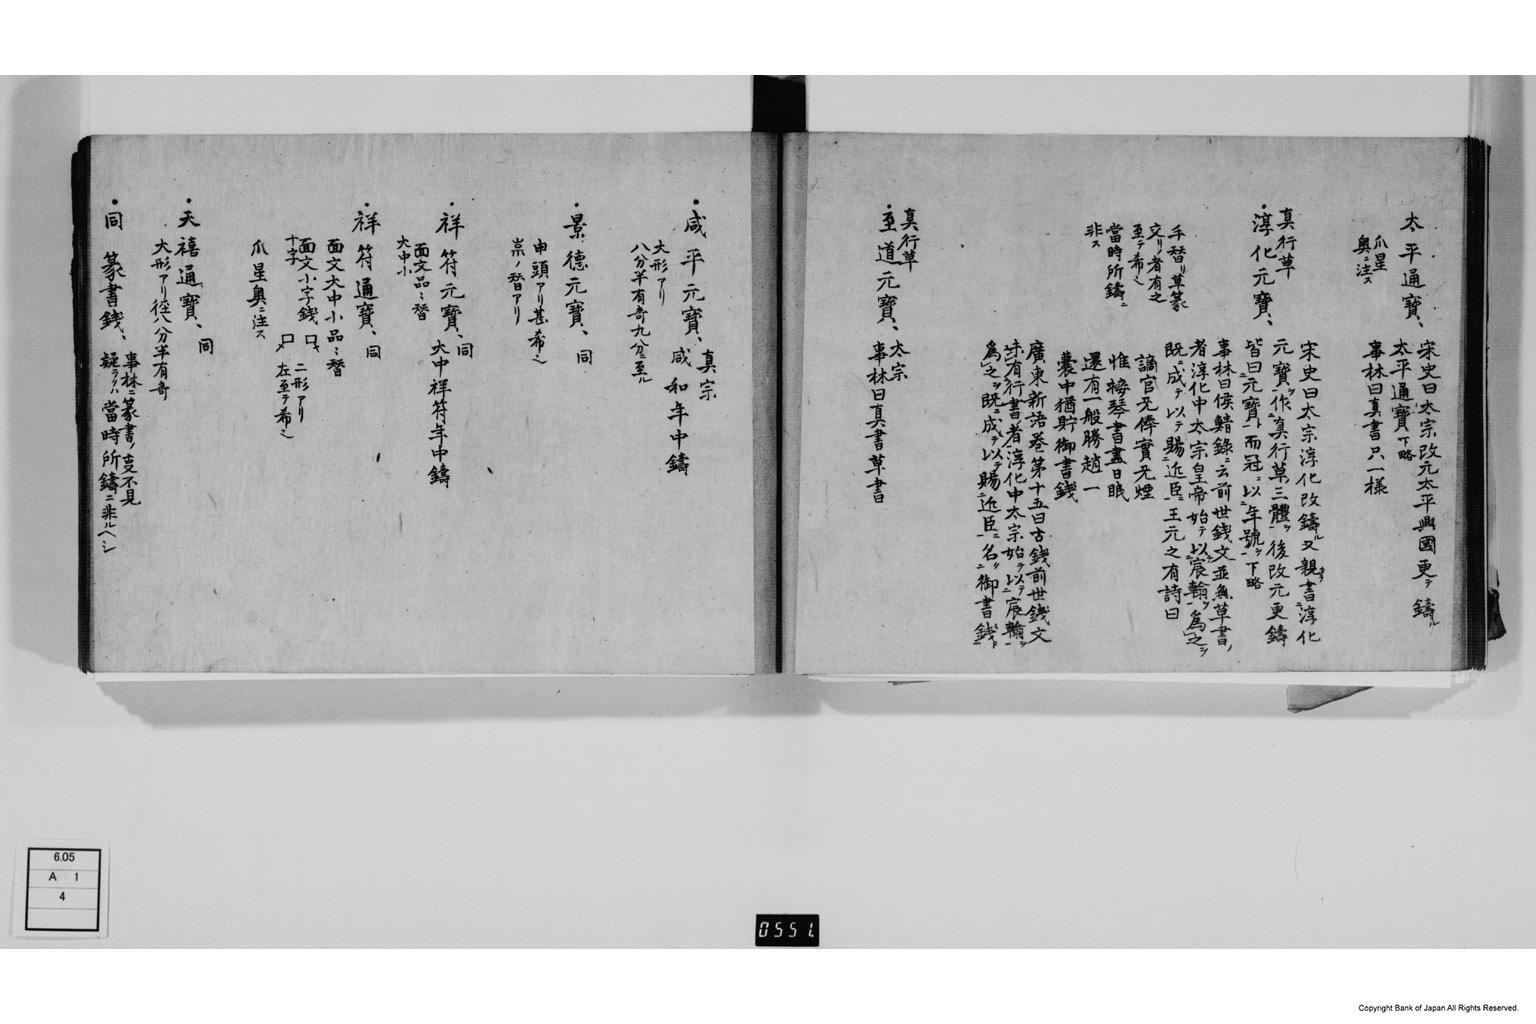 太平通寶、
爪星
奥ニ注ス
宋史曰太宗改元太平興國更テ鑄ル
太平通寶下略
事林曰真書只一様
真行草
・淳化元寶、
手替リ草篆
交リ者有之
至テ希也
當時所鑄ニ
非ス
宋史曰太宗淳化改鑄ル又親書淳化
元寶ヲ作ニ真行草三體ヲ後改元更鑄
皆曰元寶ト而冠ニ以ニ年號ヲ下略
事林曰侯鯖錄ニ云前世錢文並無草書
者淳化中太宗皇帝始テ以ニ宸翰ヲ為之ヲ
既ニ成テ以テ賜近臣ニ王元之有詩曰
謫官无俸實无煙
惟擁琴書盡日眠
還有一般勝趙一
囊中猶貯御書錢
廣東新語巻第十五曰古錢前世錢文
未有行書者淳化中太宗始テ以ニ宸翰ヲ
為之ヲ既ニ成テ以テ賜近臣ニ名ク御書錢ト
真行草
・至道元寶、
太宗
事林曰真書草書
・咸平元寶、真宗
咸和年中鑄
大形アリ
八分半有奇九分ニ至ル
・景德元寶、同
申頭アリ甚希也
祟ノ替アリ
・祥符元寶、同
大中祥符年中鑄
面文品ミ替
大中小
・祥符通寶、同
面文大中小品ミ替
面文小字錢
十字
二形アリ
左至テ希也
爪星奥ニ注ス
・天禧通寶、同
大形アリ径八分半有奇
・同 篆書錢、
事林ニ篆書ノ支不見
疑ラクハ當時所鑄ニ非ルヘシ
6.05
A 1
4
0551.
Copyright Bank of Japan All Rights Reserved.